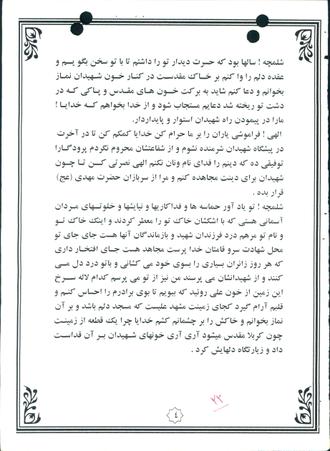 شلمچه ! سالها بود که حسرت دیدار تو را داشتم تا با تو سخن بگو یسم و
عقده دلم را وا کنم بر خاک مقدست در کنار خون شهیدان نماز
بخوانم و دعا کنم شاید به برکت خون های مقدس و پاکی که در
دشت تو ریخته شد دعایم مستجاب شود و از خدا بخواهم که خدایا !
مارا در پیمودن راه شهیدان استوار و پایداردار.
الهی ! فراموشی یاران را بر ما حرام کن خدایا کمکم کن تا در آخرت
در پیشگاه شهیدان شرمنده نشوم و از شفاعتشان محروم نگردم پروردگارا
توفیقی ده که دینم را فدای نام ونان نکنم الهی نصرتی کن تا چون
شهیدان برای دینت مجاهده کنم و مرا از سربازان حضرت مهدی (عج)
قرار بده .
شلمچه ! تو یاد آور حماسه ها و فداکاریها و نیایشها و خلوتهای مردان
آسمانی هستی که با اشکشان خاک تو را معطر کردند و اینک خاک تو
و نام تو مرهم درد فرزندان شهید و بازماندگان آنها هست جای جای تو
محل شهادت سرو قامتان خدا پرست مجاهد هست جای افتخار داری
که هر روز زائران بسیاری را بسوی خود می کشانی و باتو درد دل می
کنند و از شهیدانشان می پرسند من نیز از تو می پرسم کدام لاله سرخ
این زمین از خون علی روئید که ببویم تا بوی برادرم را احساس کنم و
قلبم آرام گیرد کجای زمینت مشهد علیست که مسجد دلم باشد و بر آن
نماز بخوانم و خاکش را بر چشمانم کشم خدایا چرا یک قطعه از زمینت
چون کربلا مقدس میشود آری آری خونهای شهیدان بر آن قداست
داد و زیارتگاه دلهایش کرد .
۲۳
٤